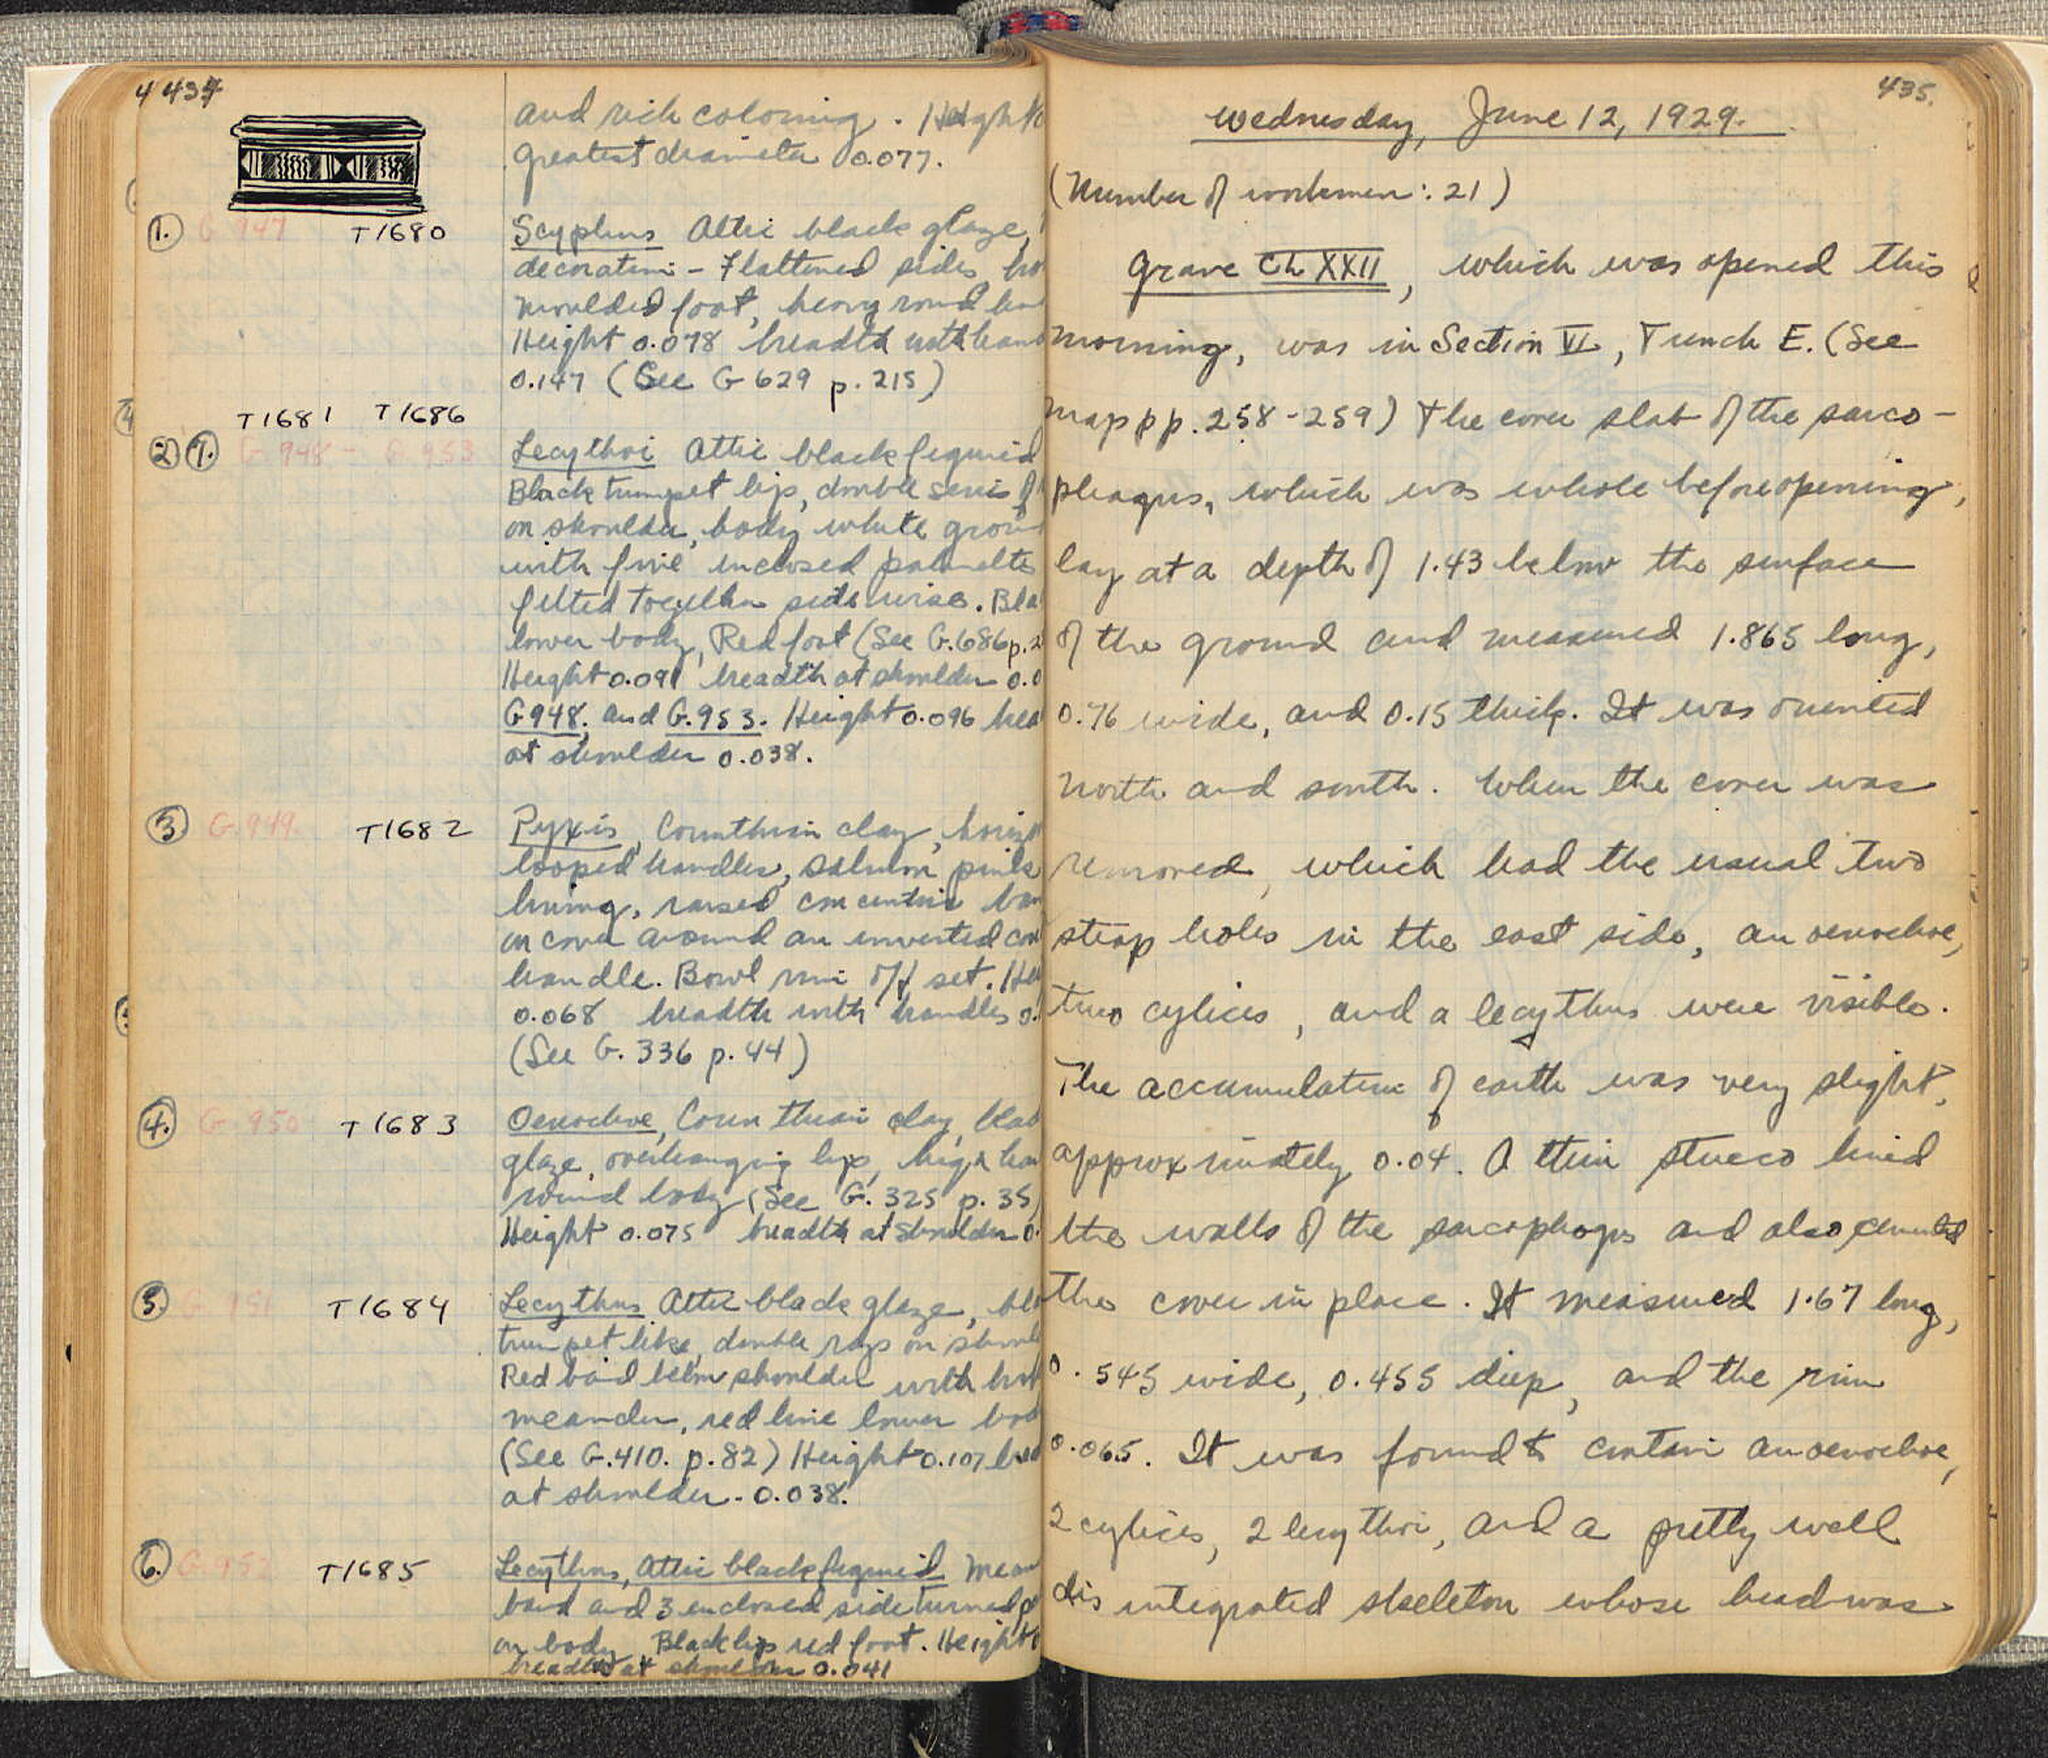 4 434
and rich coloring. Height
greatest diameter 0.077.
1. G 947 T1680
Scyphus Attic black glaze,
decoration - Flattened sides,
moulded foot, heavy round
Height 0.078 breadth with
0.147 (See G 629 p. 215)
T1681 T1686
2 7. G 948 - G. 953
Lecythoi Attic black figured
Black trumpet lip, double series of
on shoulder, body white
with five inclosed
fitted together side wise.
lower body, Red foot (See G. 686 p. 2
Height 0.091 breadth at shoulder 0.0
G 948. and G. 953. Height 0.096
at shoulder 0.038.
3. G. 949. T1682
Pyxis, Corinthian clay,
looped handles, salmon pink
lining, raised concentric
on cover around an inverted
handle. Bowl rim off set.
0.068 breadth with handles 0.
(See G. 336 p. 44)
4. G. 950 T1683
Oenochoe, Corinthian clay,
glaze, overhanging lip, high
round body (See G. 325 p. 35)
Height 0.075 breadth at shoulder 0.
5. G. 951 T1684
Lecythus Attic black glaze,
trumpet like, double rays on
Red band below shoulder with
meander, red line lower
(See G. 410. p. 82) Height 0.107
at shoulder. 0.038.
6. G. 952 T1685
Lecythus, Attic black figured
band and 3 enclosed side turned
on body Black lip red foot. Height
breadth at shoulder 0.041
435.
Wednesday, June 12, 1929.
(Number of workmen: 21)
Grave Ch XXII, which was opened this
morning, was in Section VI, Trench E. (See
map pp. 258-259) The cover slab of the sarco-
phagus, which was whole before opening,
lay at a depth of 1.43 below the surface
of the ground and measured 1.865 long,
0.76 wide, and 0.15 thick. It was oriented
north and south. When the cover was
removed, which had the usual two
strap holes in the east side, an oenochoe,
two cylices, and a lecythus were visible.
The accumulation of earth was very slight,
approximately 0.04. A thin stucco lined
the walls of the sarcophagus and also cemented
the cover in place. It measured 1.67 long,
0.545 wide, 0.455 deep, and the rim
0.065. It was found to contain an oenochoe,
2 cylices, 2 lecythoi, and a pretty well
disintegrated skeleton whose head was